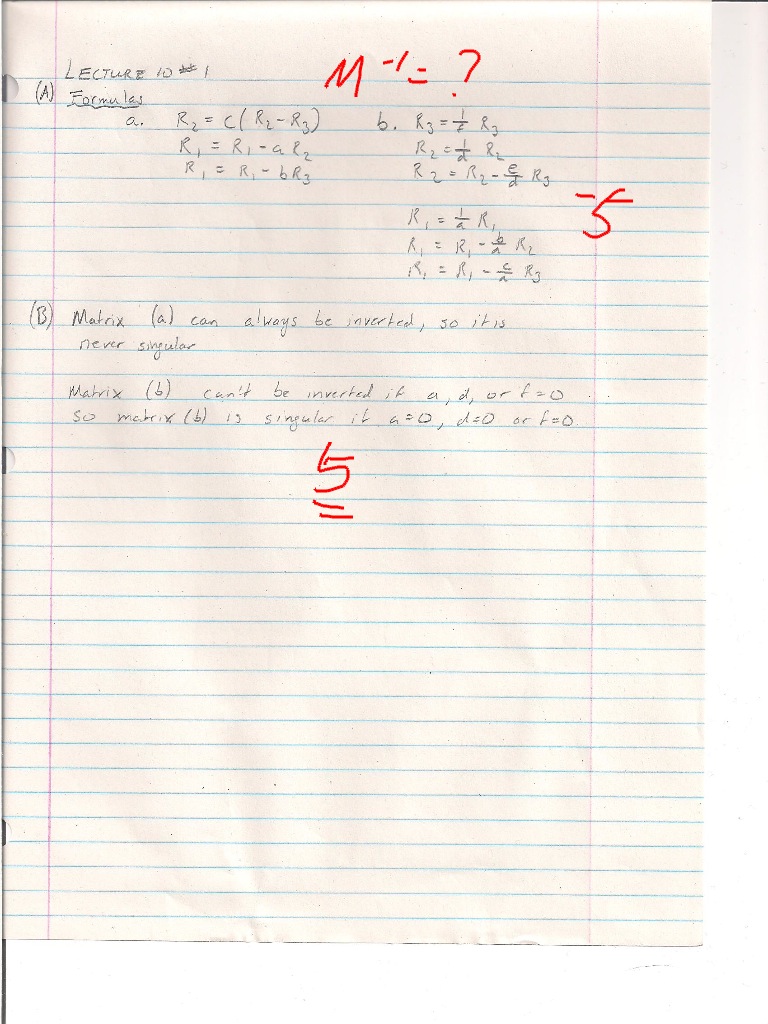 LECTURE 10 #1
M⁻¹ = ?
(A) Formulas
a. R₂ = c(R₂-R₃)
R₁ = R₁ - aR₂
R₁ = R₁ - bR₃
b. R₃ = 1/f R₃
R₂ = 1/d R₂
R₂ = R₂ - e/d R₃
-5
R₁ = 1/a R₁
R₁ = R₁ - b/a R₂
R₁ = R₁ - c/a R₃
(B) Matrix (a) can always be inverted, so it is
never singular
Matrix (b) can't be inverted if a, d, or f=0
so matrix (b) is singular if a=0, d=0 or f=0.
5